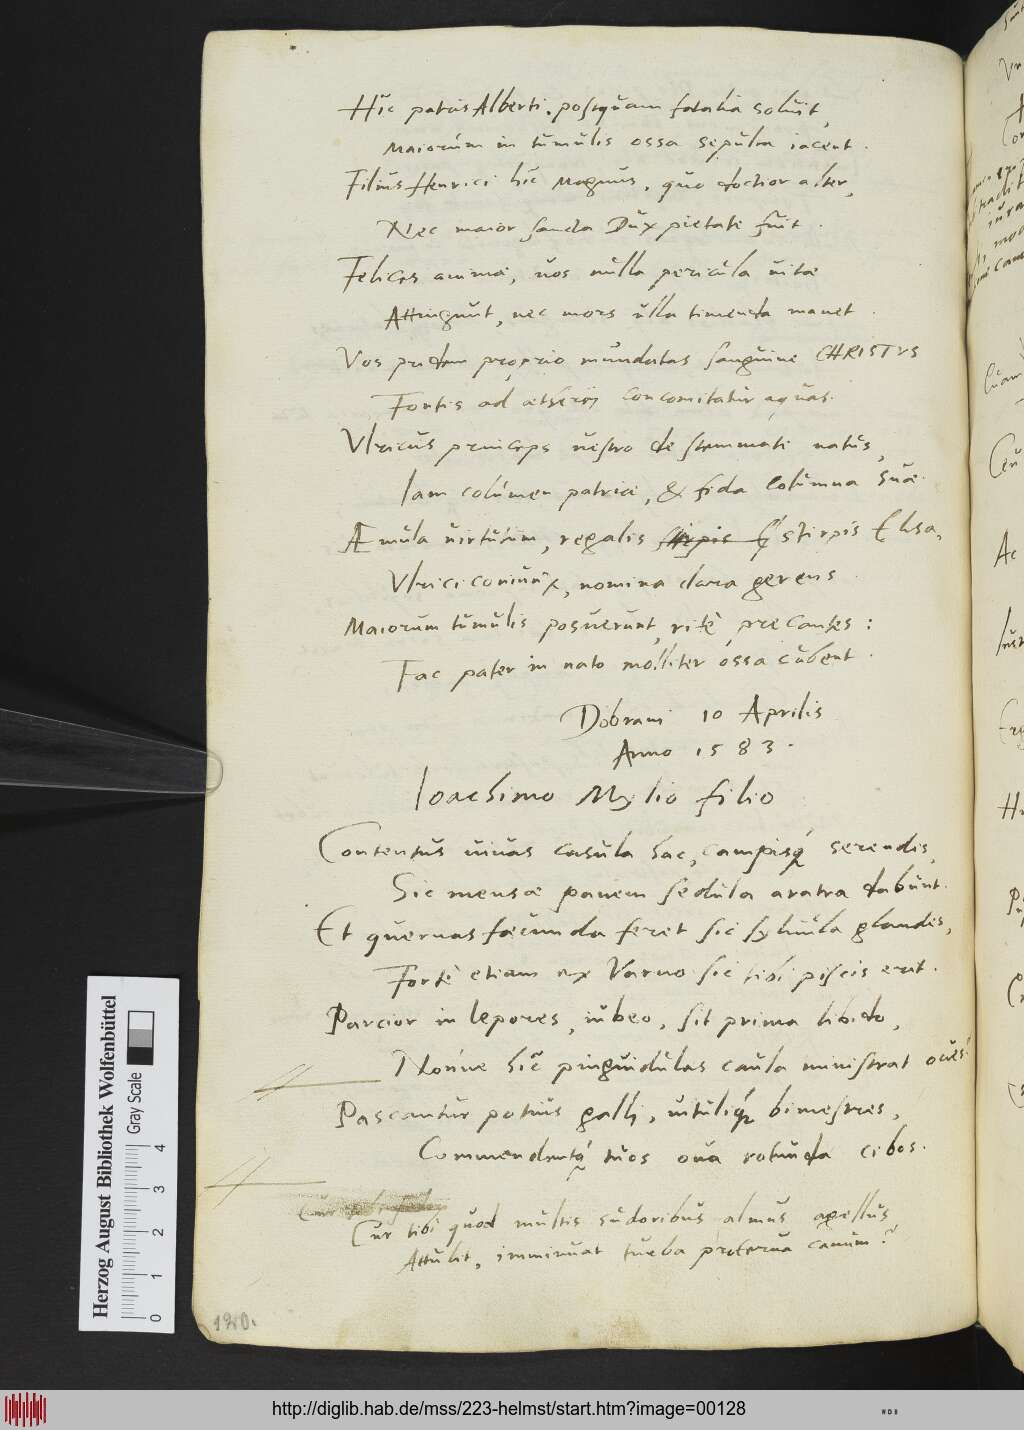 Hic patris Alberti, postquam fatalia soluit,
Maiorum in tumulis ossa sepulta iacent.
Filius Henrici hic Magnus, quo doctior alter,
Nec maior sancta Dux pietate fuit.
Felices animæ, uos nulla pericula uitæ
Attingunt, nec mors ulla timenda manet.
Vos pridem proprio mundatas sanguine CHRISTVS
Fontis ad ætherij concomitatur aquas.
Vlricus princeps uestro de stemmate natus,
Iam columen patriæ, & fida columna suæ.
Æmula uirtutum, regalis stirpis E stirpis Elisa,
Vlrici coniunx, nomina clara gerens
Maiorum tumulis posuerunt, ritè precantes:
Fac pater in nato molliter ossa cubent.
Dobrani 10 Aprilis
Anno 1583.
Ioachimo Mylio filio
Contentus uiuas casula hac, campisq́ serendis,
Sic mensæ panem sedula aratra dabunt.
Et quernas fœcunda feret sic syluula glandes,
Fortè etiam ex Varno sic tibi piscis erit.
Parcior in lepores, iubeo, sit prima libido,
Nonne hîc pinguidulas caula ministrat oues?
Pascantur potius galli, uituliq́ bimestres,
Commendentq́ tuos oua rotunda cibos.
Cur tibi
Cur tibi quod multis sudoribus almus agellus
Attulit, imminuat turba proterua canum?
120.
Herzog August Bibliothek Wolfenbüttel
Gray Scale
0 1 2 3 4
http://diglib.hab.de/mss/223-helmst/start.htm?image=00128